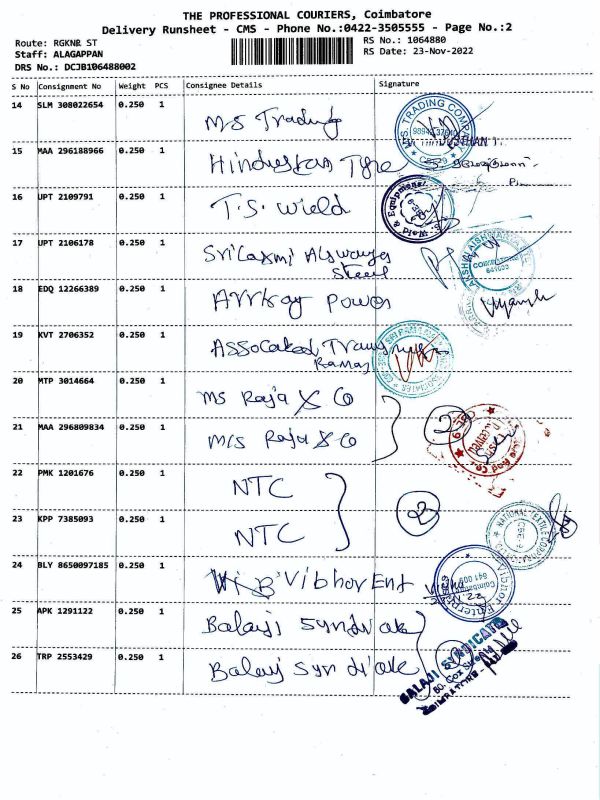 THE PROFESSIONAL COURIERS, Coimbatore
Delivery Runsheet - CMS - Phone No.:0422-3505555 - Page No.:2
Route: RGKNR ST
RS No.: 1064880
Staff: ALAGAPPAN
RS Date: 23-Nov-2022
DRS No.: DCJB106488002
S No Consignment No Weight PCS Consignee Details Signature
14 SLM 308022654 0.250 1 M.S Trading
15 MAA 296188966 0.250 1 Hindustan Tyre
16 UPT 2109791 0.250 1 T.S. Wield
17 UPT 2106178 0.250 1 Sri Laxmi
Steel
18 EDQ 12266389 0.250 1 Power
19 KVT 2706352 0.250 1
20 MTP 3014664 0.250 1 MS Raja & Co
21 MAA 296809834 0.250 1 M/S Raja & Co
22 PMK 1201676 0.250 1 NTC
23 KPP 7385093 0.250 1 NTC
24 BLY 8650097185 0.250 1 Vibhor Ent
25 APK 1291122 0.250 1 Balaji Syndicate
26 TRP 2553429 0.250 1 Balaji Syndicate
BALAJI SYNDICATE